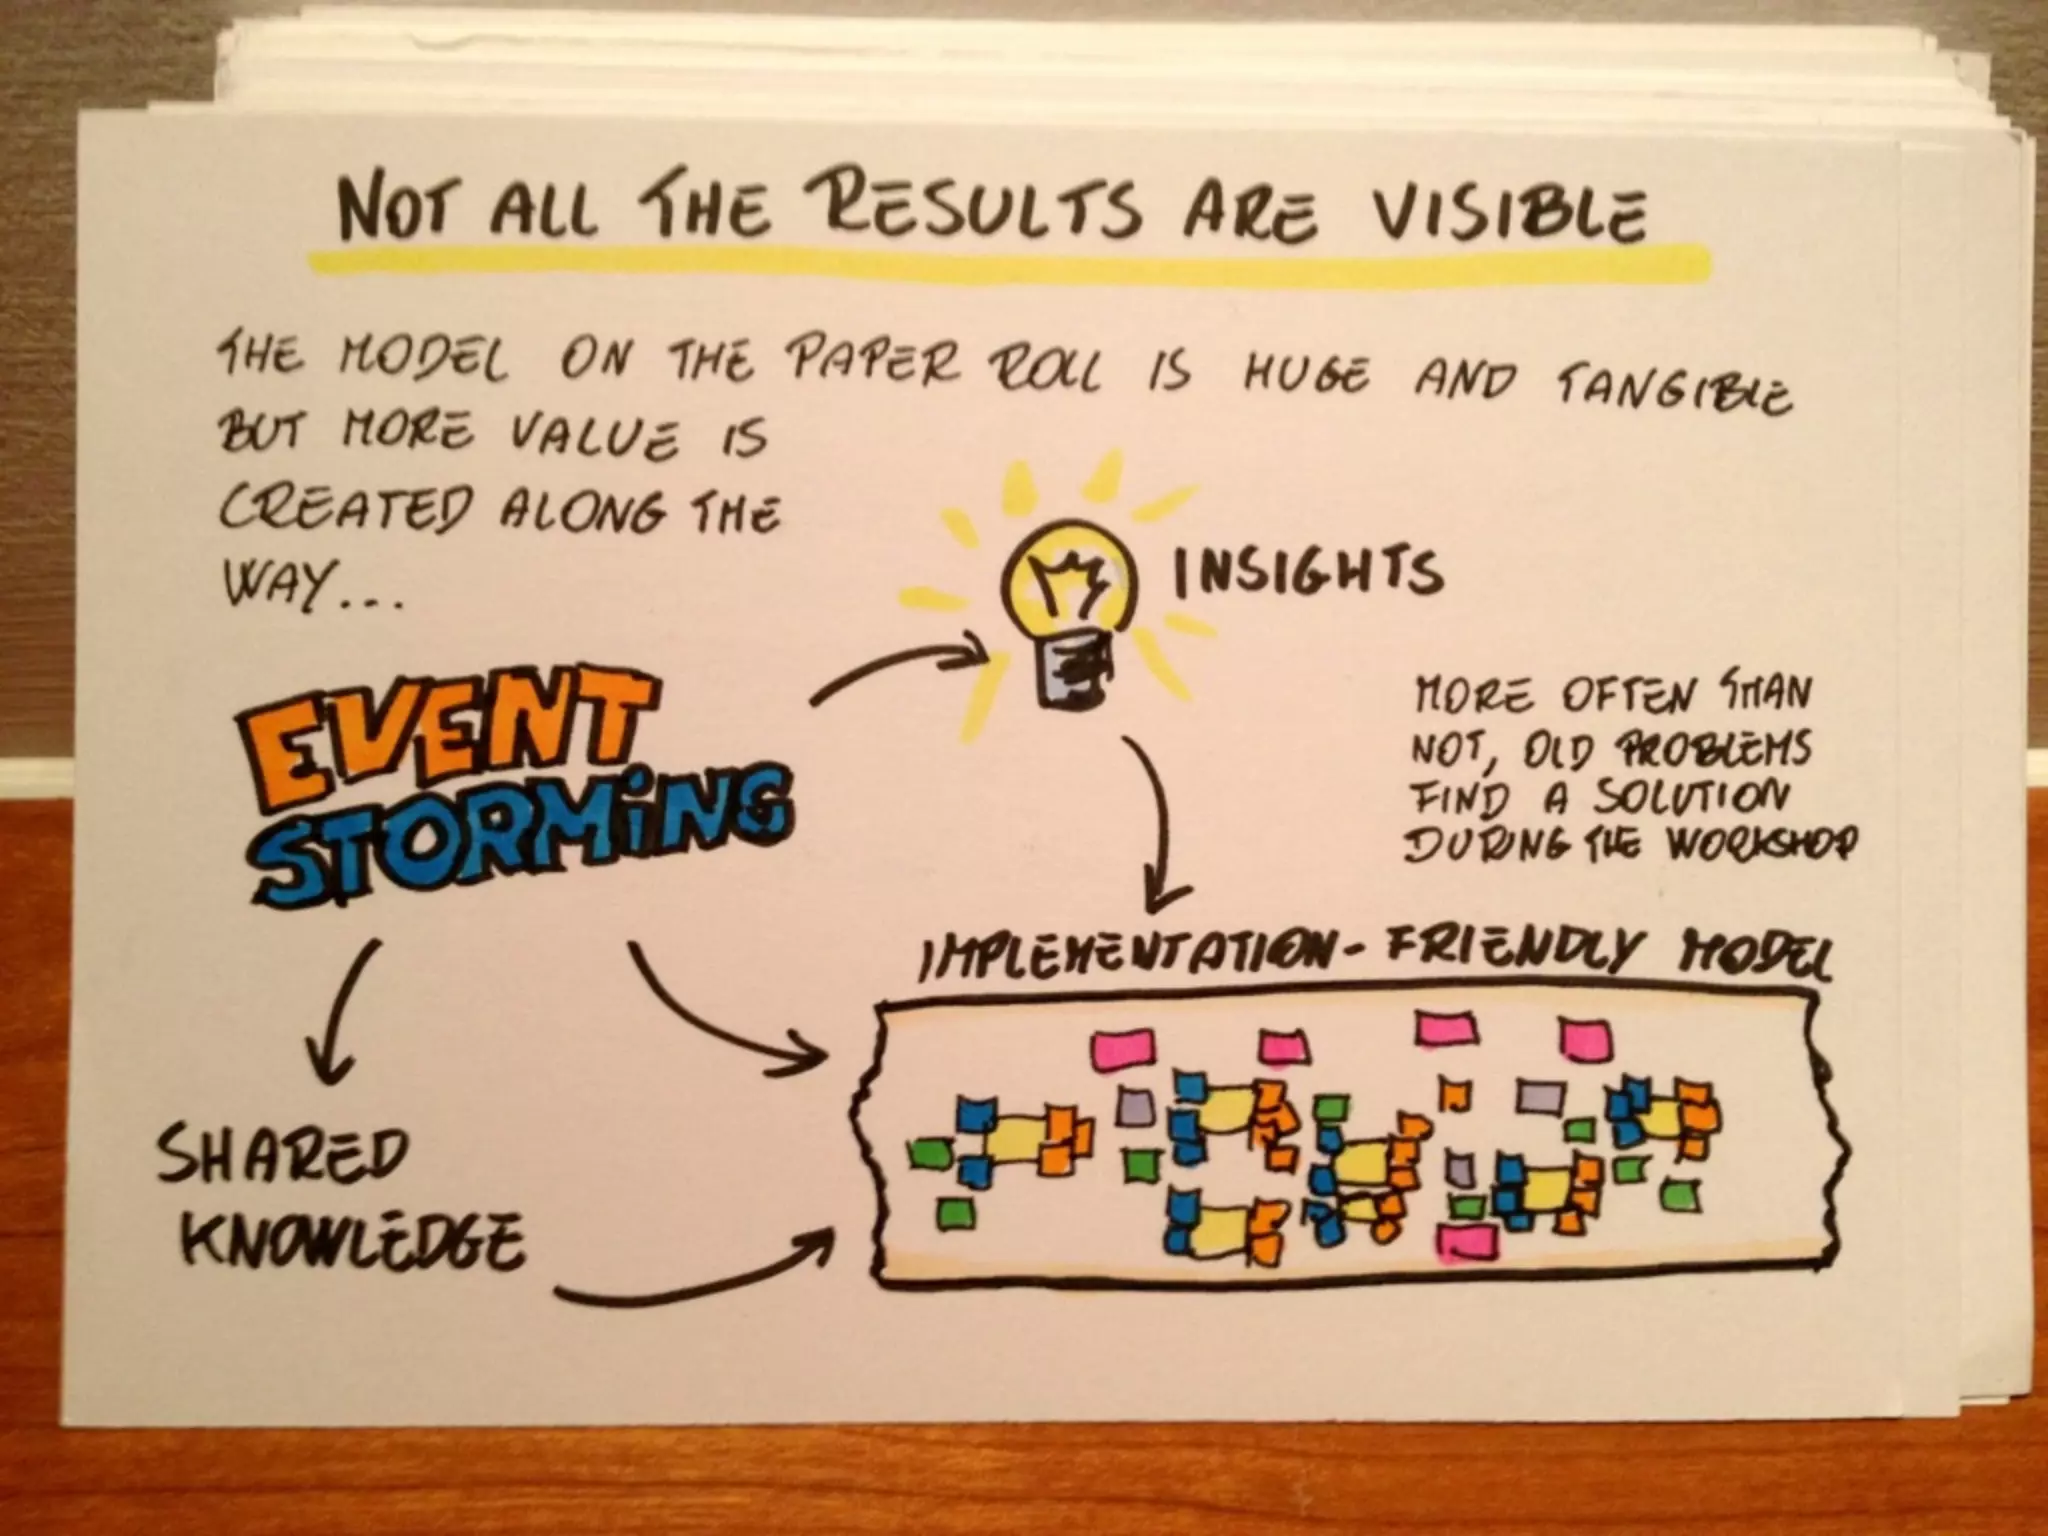 NOT ALL THE RESULTS ARE VISIBLE
THE MODEL ON THE PAPER ROLL IS HUGE AND TANGIBLE
BUT MORE VALUE IS
CREATED ALONG THE
WAY...
INSIGHTS
EVENT
STORMiNG
MORE OFTEN THAN
NOT, OLD PROBLEMS
FIND A SOLUTION
DURING THE WORKSHOP
IMPLEMENTATION-FRIENDLY MODEL
SHARED
KNOWLEDGE